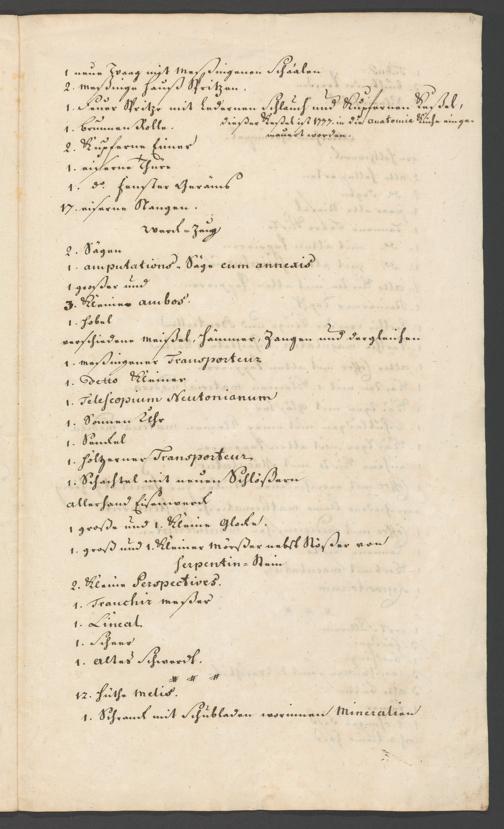 1 neue Waag mit Messingenen Schaalen
2. messinge Hauß Spritzen.
1. Feuer Spritze mit Ledernen Schlauch und Kupfernen Keßel,
dießer Keßel ist 1777. in die anatomie Küche einge-
mauert worden.
1. brunnen Rolle.
2. Kupferne Eimer
1. eiserne Thüre
1. do. Fenster Geräms
17. eiserne Stangen.
Werck-Zeug
2. Sägen
1. amputations-Säge cum annexis
1 großer und
3. Kleiner ambos.
1. Hobel
verschiedene Meißel, Hämmer, Zangen und dergleichen
1. messingener Transporteur
1. Detto Kleiner
1. Telescopium Neutonianum
1. Sonnen Uhr
1. Senckel
1. höltzerner Transporteur
1. Schachtel mit neuen Schlößern
allerhand Eisenwerck
1 große und 1. Kleine Glocke.
1. groß und 1. Kleiner Mörßer nebst Stößer von
Serpentin-Stein
2. Kleine Perspectives.
1. Tranchir Meßer
1. Lineal
1. Scheer
1. altes Schwerdt.
12. Hüthe Melis.
1. Schranck mit Schubladen worinnen Mineralien